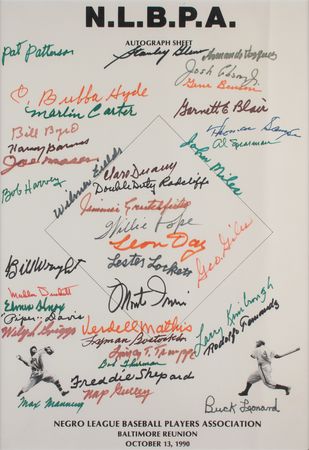 N.L.B.P.A.
AUTOGRAPH SHEET
Pat Patterson
Stanley Glenn
Armando Vazquez
Josh Gibson Jr.
Gene Benson
Bubba Hyde
Garnett E Blair
Marlin Carter
Bill Byrd
Thomas Sampson
Al Spearman
Harry Barnes
Joe Mason
John Miles
Wilmer Fields
Clara Duany
Bob Harvey
Double Duty Radcliffe
Jimmie Crutchfield
Willie Pope
Leon Day
Geo. Giles
Bill Wright
Lester Lockett
Monte Irvin
Mahlon Duckett
Elmer Knox
Piper Davis
Verdell Mathis
Larry Kimbrough
Wilmer Griggs
Lyman Bostock
Rodolfo Fernandez
Quincy T. Trouppe
Bob Thurman
Freddie Shepard
Nap Gulley
Max Manning
Buck Leonard
NEGRO LEAGUE BASEBALL PLAYERS ASSOCIATION
BALTIMORE REUNION
OCTOBER 13, 1990